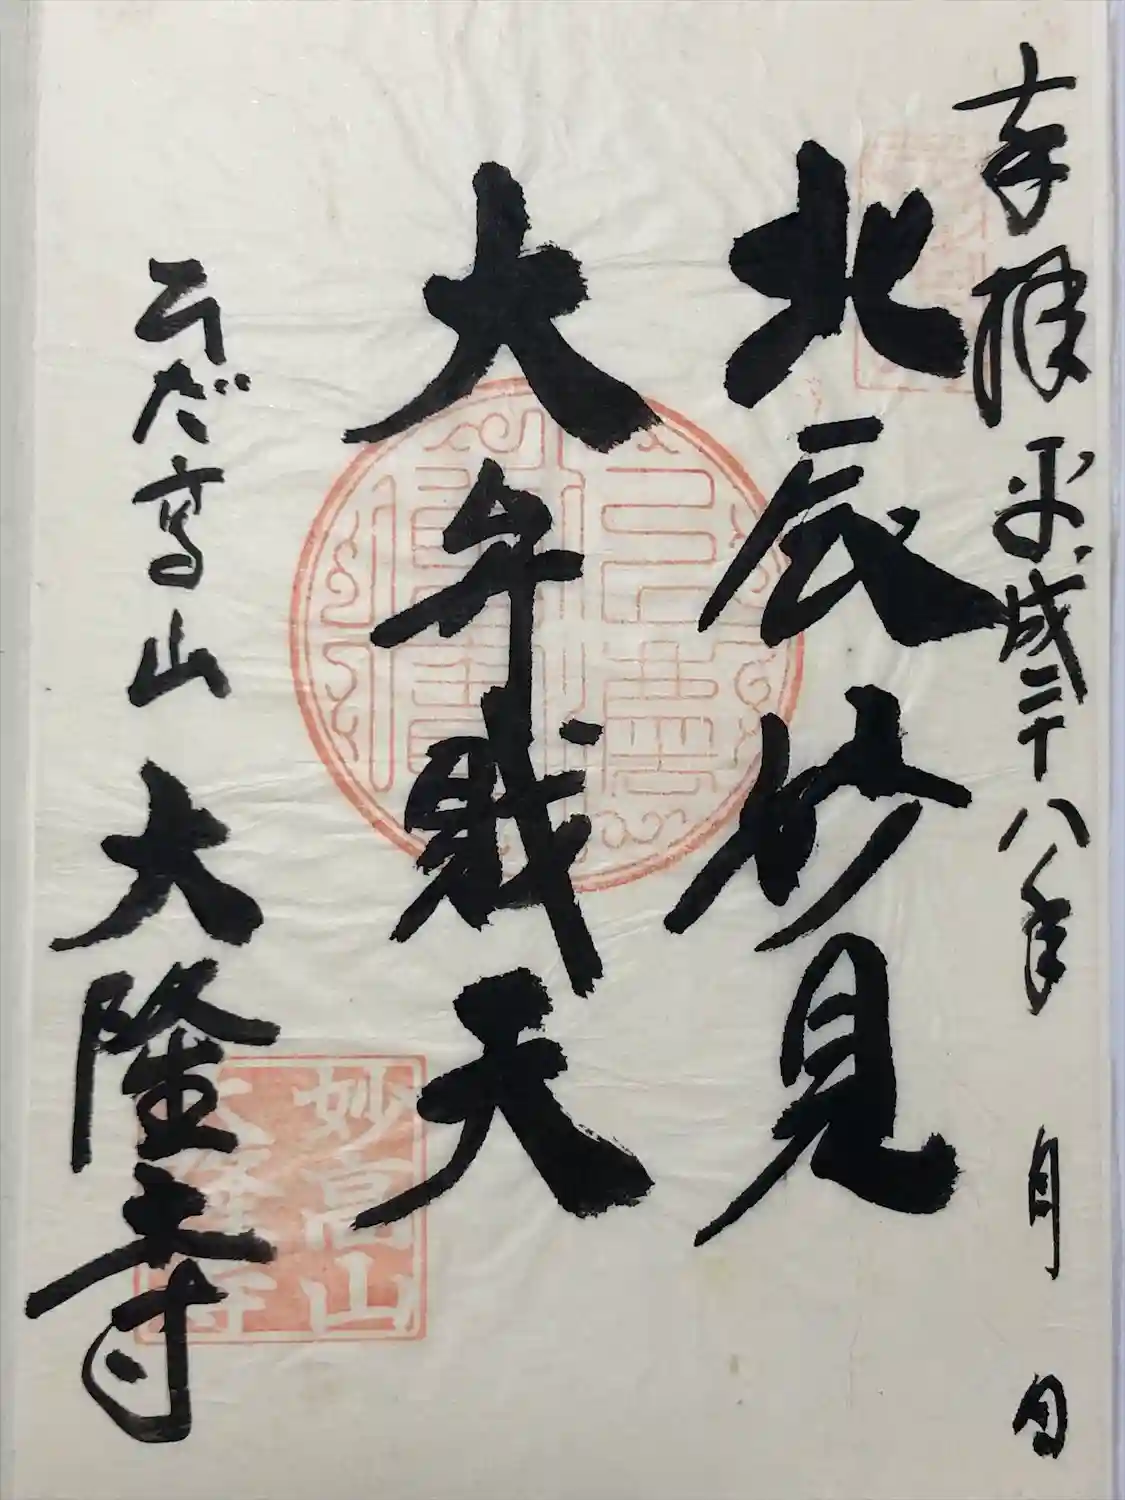 奉拝 平成二十八年 月 日
北辰妙見
大弁財天
飛だ高山 大隆寺
妙高山
大隆寺